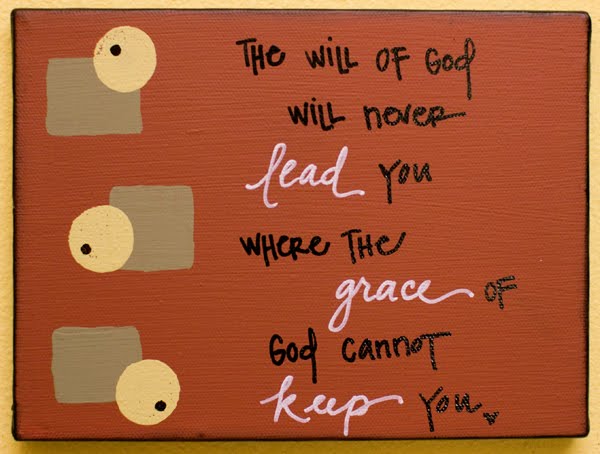 THE WILL OF GOD
WILL never
lead YOU
WHERE THE
grace OF
GOD CANNOT
keep YOU